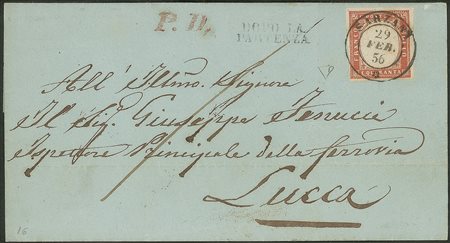 P. D.
DOPO LA
PARTENZA
SARZANA
29
FEB.
56
FRANCO
C. QUARANTA
All' Illmo. Signore
Il Sig. Giuseppe Fenucci
Ispettore Principale della ferrovia
Lucca
16